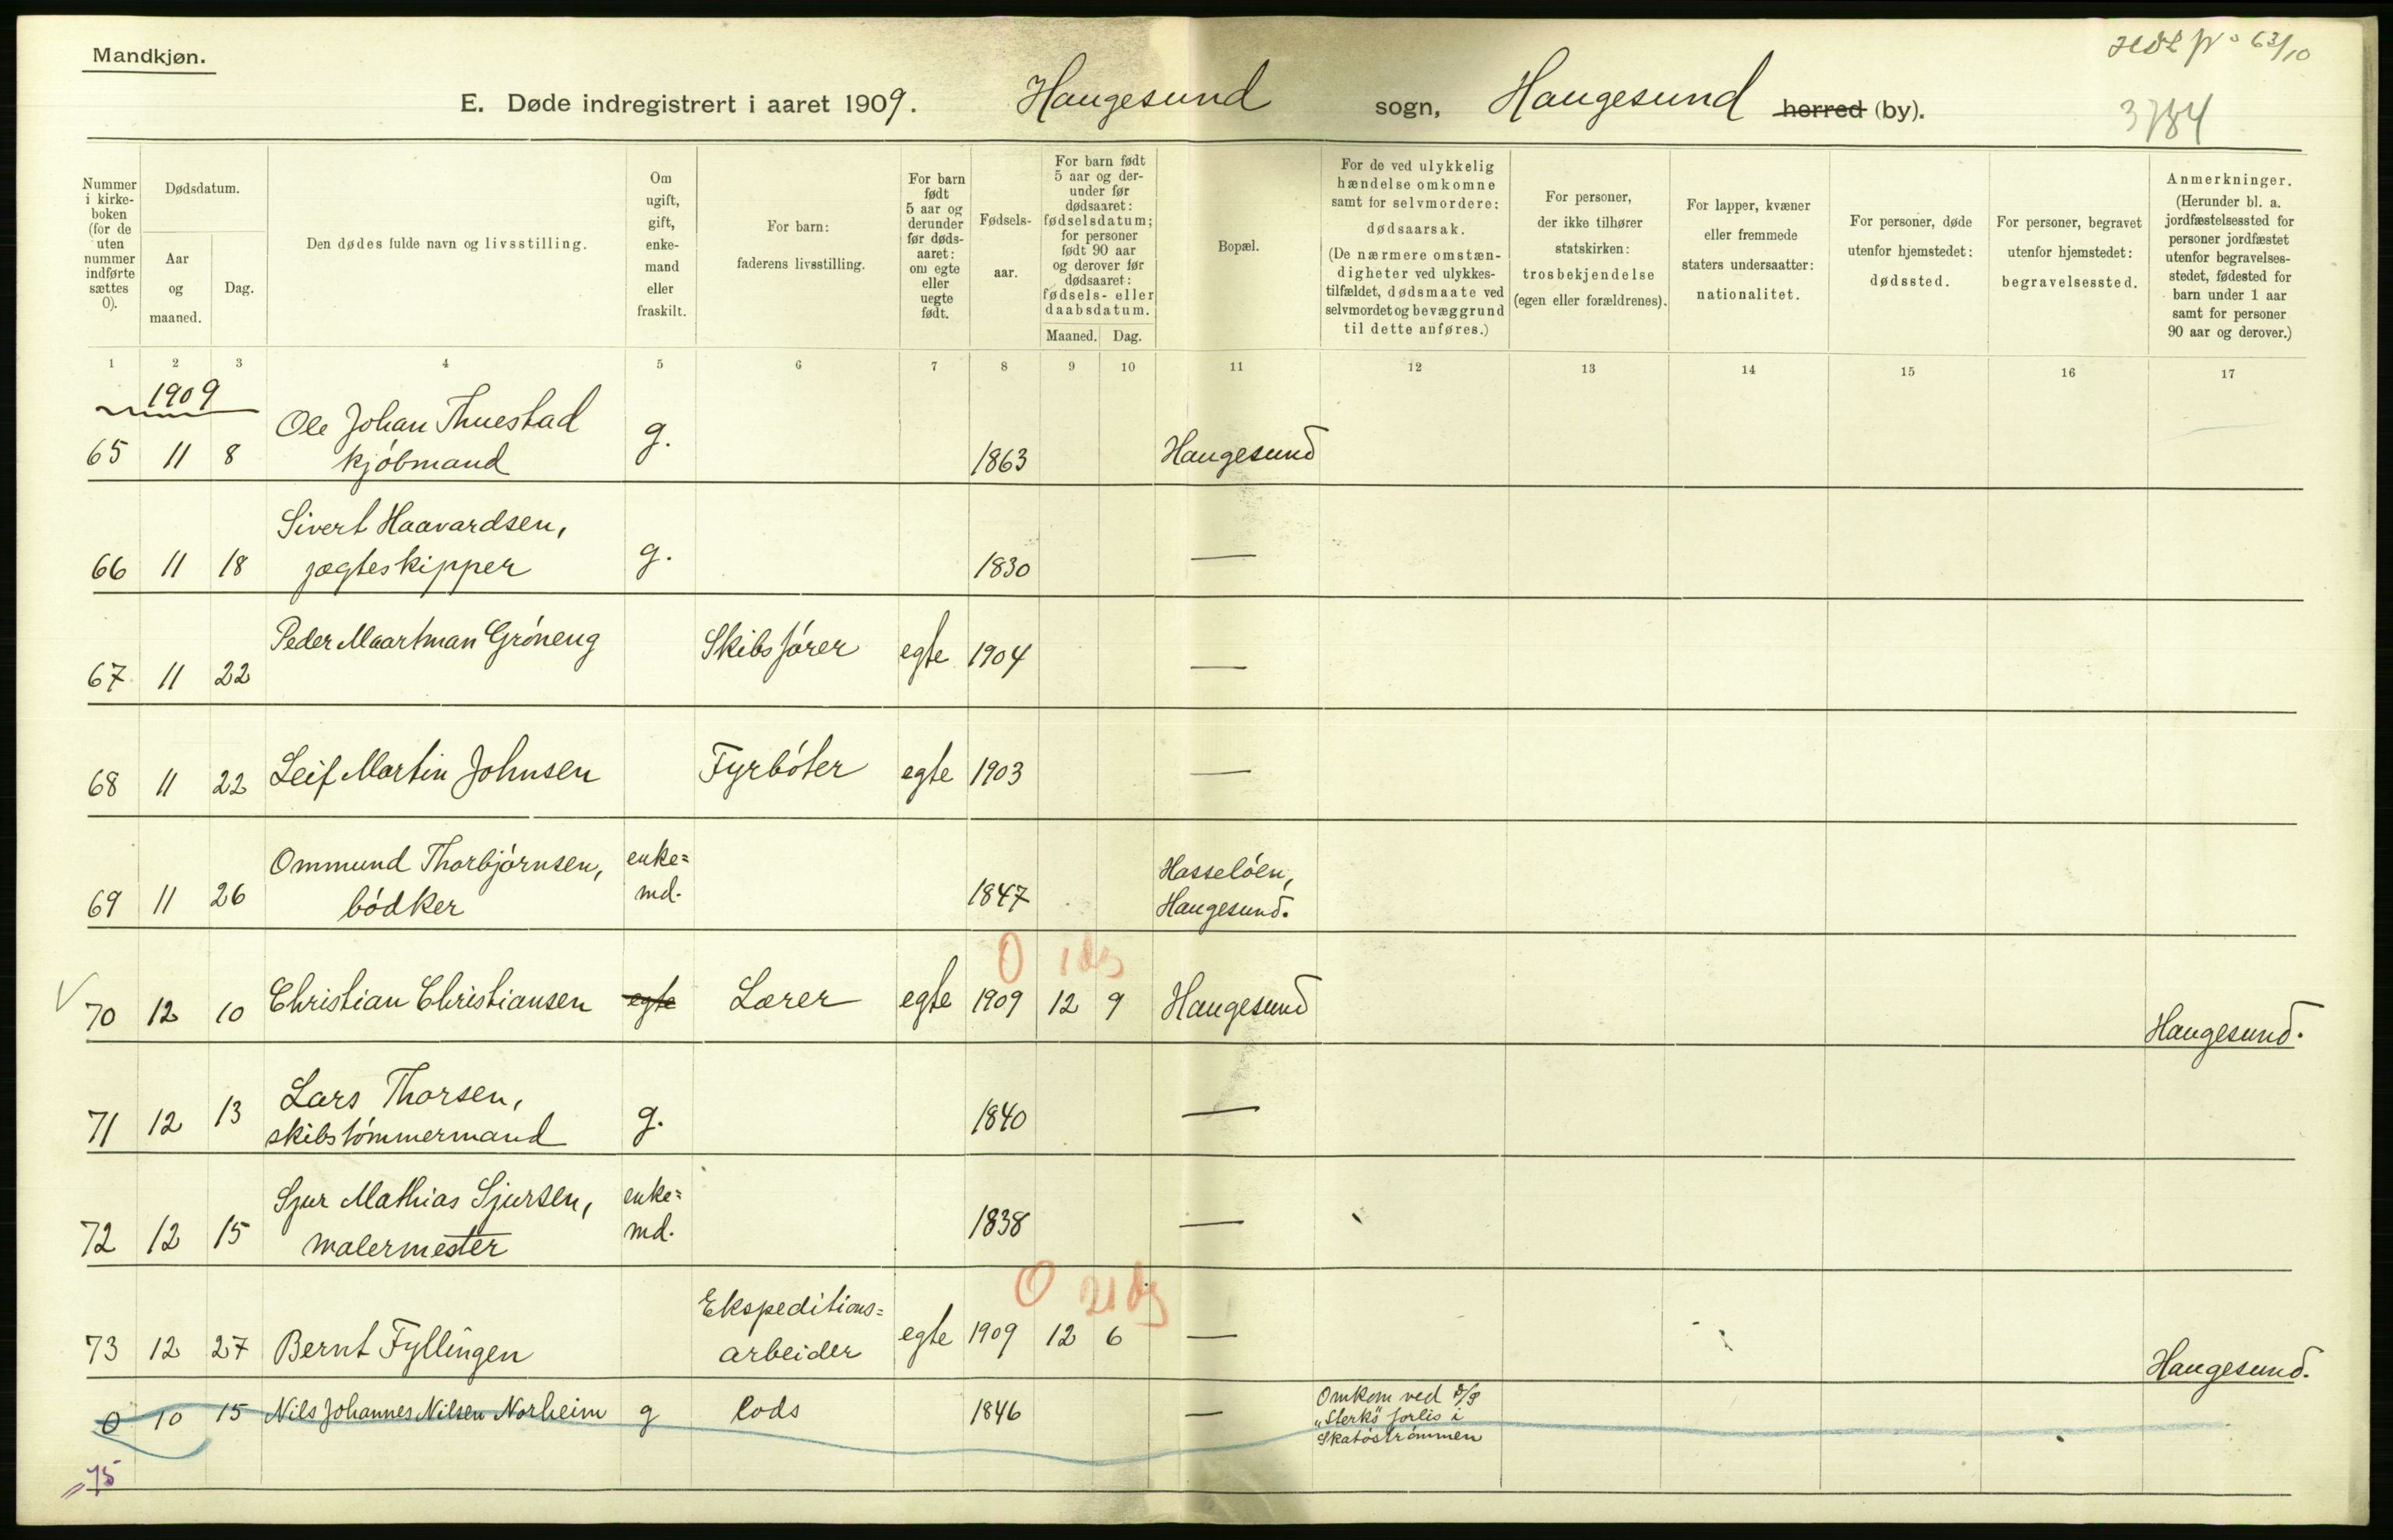 Mandkjøn.
E. Døde indregistrert i aaret 1909. Haugesund sogn, Haugesund herred (by).
No 63/10
3784
Nummer i kirke- boken (for de uten nummer indførte sættes 0).
Dødsdatum.
Aar og maaned.
Dag.
Den dødes fulde navn og livsstilling.
Om ugift, gift, enke- mand eller fraskilt.
For barn: faderens livsstilling.
For barn født 5 aar og derunder før døds- aaret: om egte eller uegte født.
Fødsels- aar.
For barn født 5 aar og der- under før dødsaaret: fødselsdatum; for personer født 90 aar og derover før dødsaaret: fødsels- eller daabsdatum.
Maaned. Dag.
Bopæl.
For de ved ulykkelig hændelse omkomne samt for selvmordere: dødsaarsak. (De nærmere omstæn- digheter ved ulykkes- tilfældet, dødsmaate ved selvmordet og bevæggrund til dette anføres.)
For personer, der ikke tilhører statskirken: trosbekjendelse (egen eller forældrenes).
For lapper, kvæner eller fremmede staters undersaatter: nationalitet.
For personer, døde utenfor hjemstedet: dødssted.
For personer, begravet utenfor hjemstedet: begravelsessted.
Anmerkninger. (Herunder bl. a. jordfæstelsessted for personer jordfæstet utenfor begravelses- stedet, fødested for barn under 1 aar samt for personer 90 aar og derover.)
1 2 3 4 5 6 7 8 9 10 11 12 13 14 15 16 17
1909
65 11 8 Ole Johan Thuestad kjöbmand g. 1863 Haugesund
66 11 18 Sivert Haavardsen, jægteskipper g. 1830 —
67 11 22 Peder Maartman Gröneng Skibsförer egte 1904 —
68 11 22 Leif Martin Johnsen Fyrböter egte 1903 —
69 11 26 Ommund Thorbjörnsen, bödker enke= md. 1847 Hasselöen, Haugesund.
0 1 dg
70 12 10 Christian Christiansen egte Lærer egte 1909 12 9 Haugesund Haugesund.
71 12 13 Lars Thorsen, skibstömmermand g. 1840 —
72 12 15 Sjur Mathias Sjursen, malermester enke= md. 1838 —
0 21 dg
73 12 27 Bernt Fyllingen Ekspeditions= arbeider egte 1909 12 6 — Haugesund.
0 10 15 Nils Johannes Nilsen Norheim g Lods 1846 — Omkom ved D/S "Sterks" forlis i Skatöströmmen
75